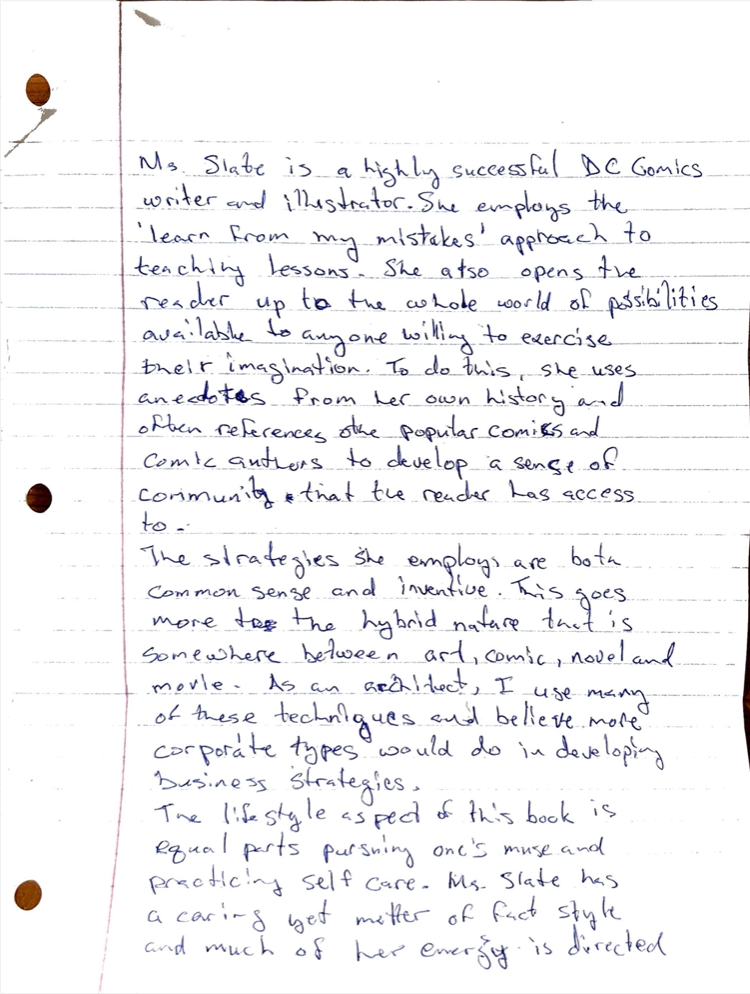 Ms. Slate is a highly successful DC Comics
writer and illustrator. She employs the
'learn from my mistakes' approach to
teaching lessons. She also opens the
reader up to the whole world of possibilities
available to anyone willing to exercise
their imagination. To do this, she uses
anecdotes from her own history and
often references other popular comics and
comic authors to develop a sense of
community that the reader has access
to.
The strategies she employs are both
common sense and inventive. This goes
more to the hybrid nature that is
somewhere between art, comic, novel and
movie. As an architect, I use many
of these techniques and believe more
corporate types would do in developing
business strategies.
The lifestyle aspect of this book is
equal parts pursuing one's muse and
practicing self care. Ms. Slate has
a caring yet matter of fact style
and much of her energy is directed